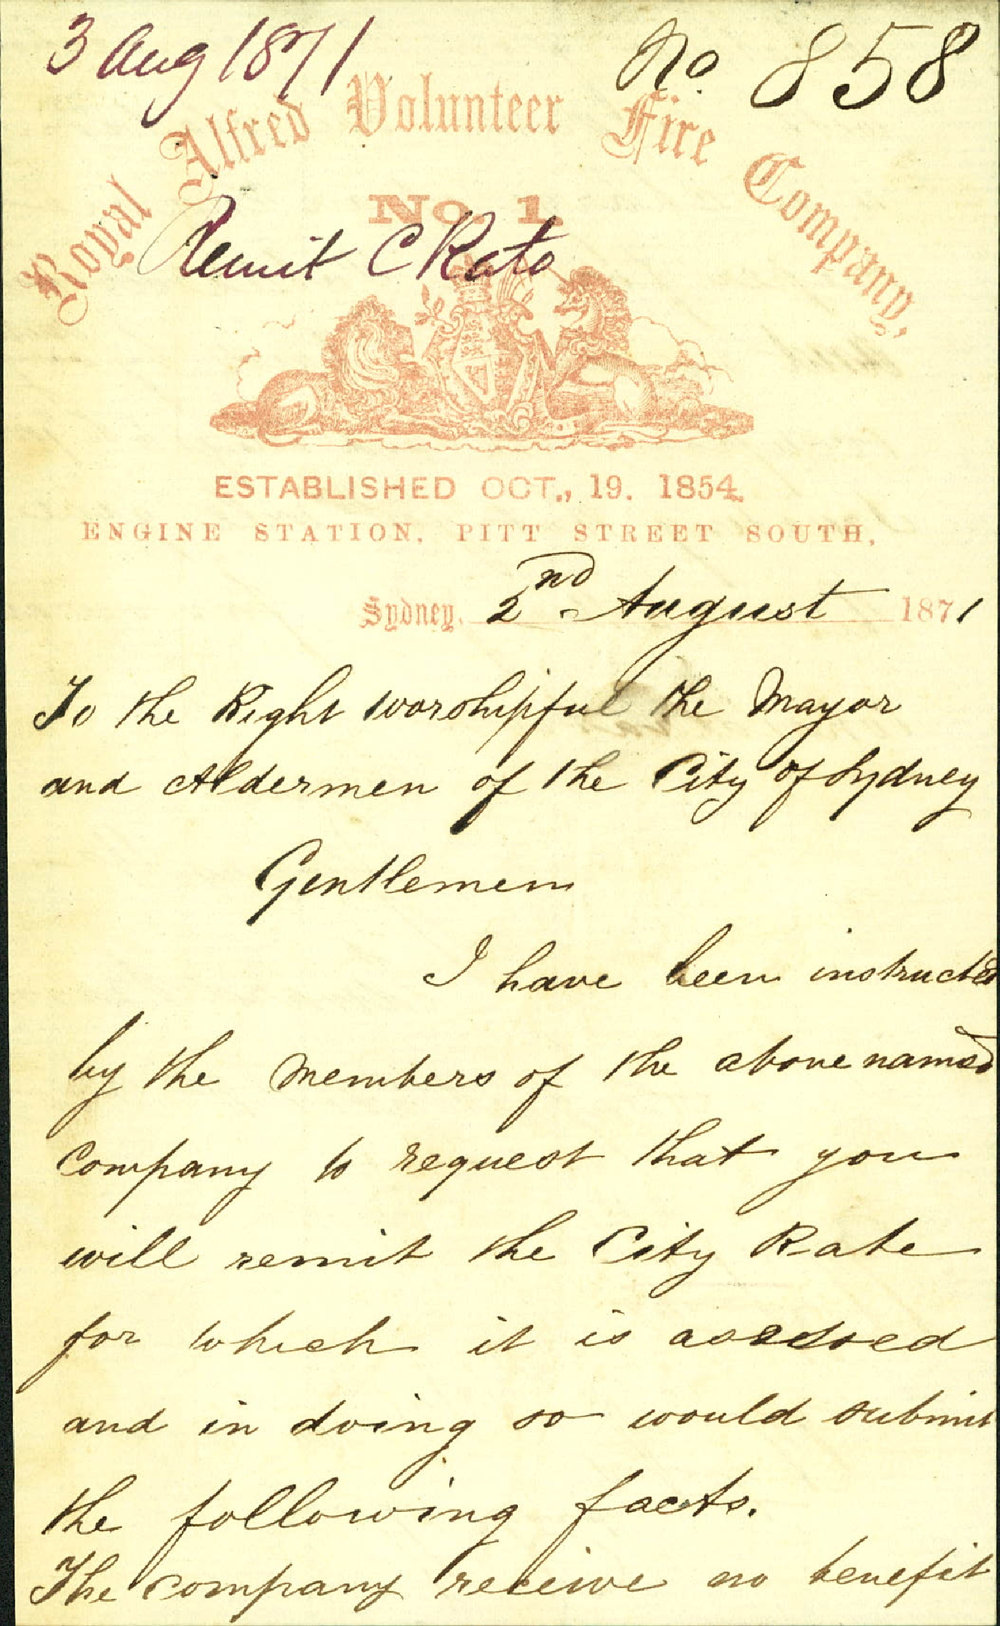 3 Aug 1871
No. 858
Royal Alfred Volunteer Fire Company,
No. 1.
Remit C Rate
ESTABLISHED OCT., 19. 1854.
ENGINE STATION, PITT STREET SOUTH,
Sydney, 2nd August 1871
To the Right Worshipful the Mayor
and Aldermen of the City of Sydney
Gentlemen
I have been instructed
by the Members of the above named
Company to request that you
will remit the City Rate
for which it is assessed
and in doing so would submit
the following facts.
The Company receive no benefit